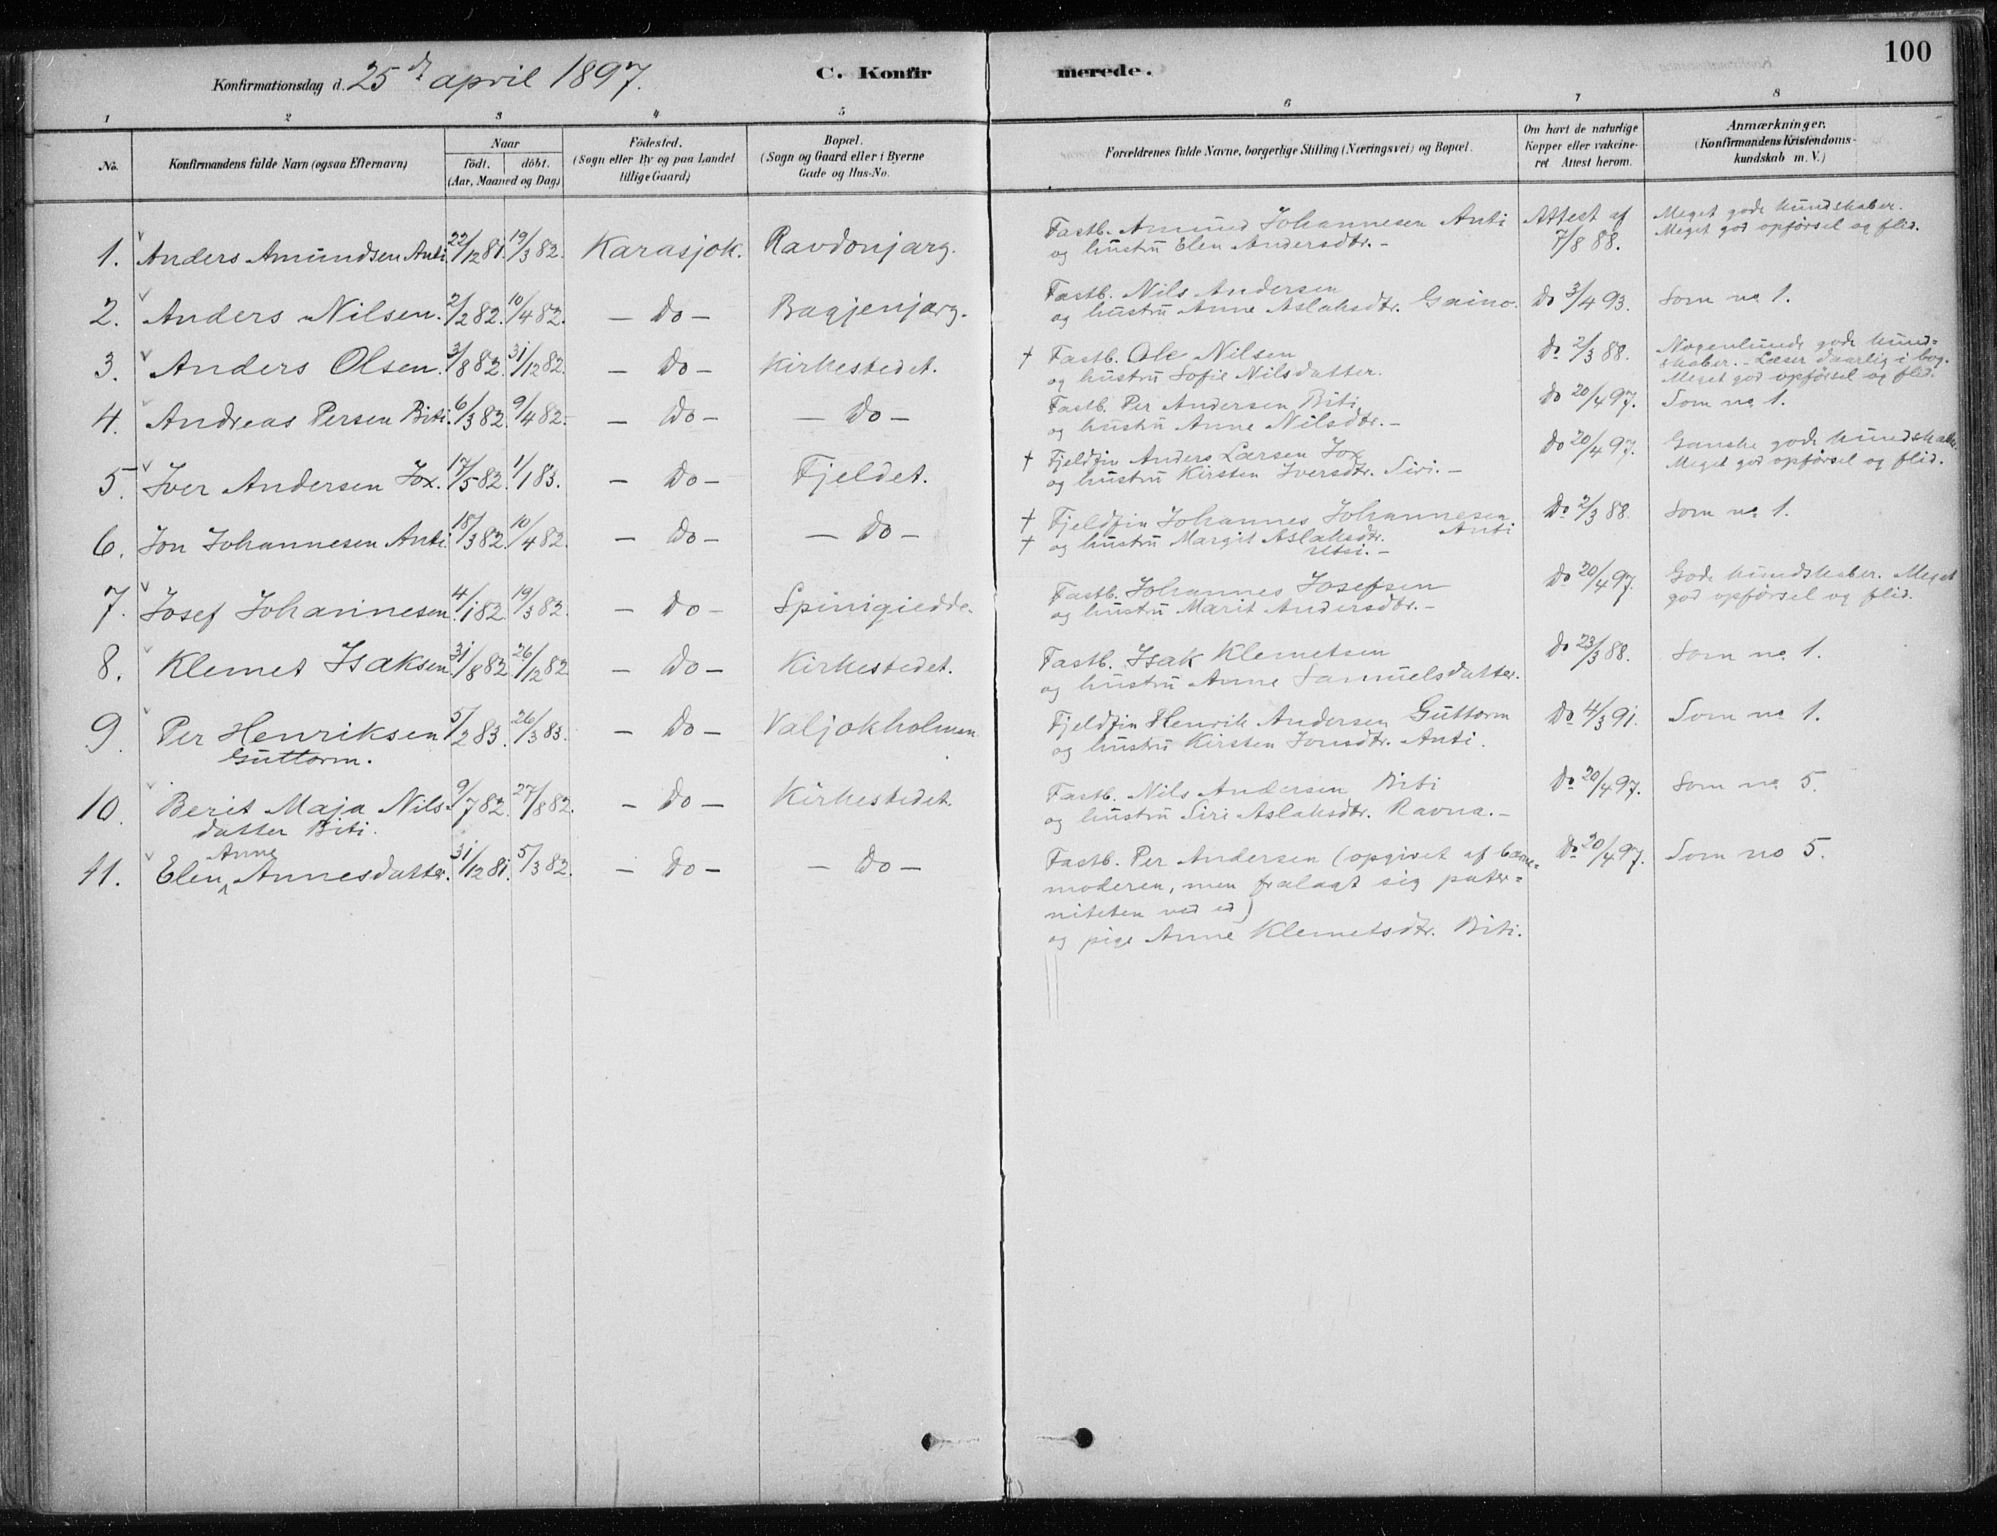 100
Konfirmationsdag d. 25de april 1897.
C. Konfirmerede.
1 2 3 4 5 6 7 8
No.
Konfirmandens fulde Navn (ogsaa Efternavn)
Naar
födt. döbt.
(Aar, Maaned og Dag)
Födested.
(Sogn eller By og paa Landet
tillige Gaard)
Bopæl.
(Sogn og Gaard eller i Byerne
Gade og Hus-No.
Forældrenes fulde Navne, borgerlige Stilling (Næringsvei) og Bopæl.
Om havt de naturlige
Kopper eller vakcine-
ret Attest herom.
Anmærkninger.
(Konfirmandens Kristendoms-
kundskab m. V.)
1. Anders Amundsen Anti 22/12 81. 19/3 82. Karasjok. Ravdonjarg.
Fastb. Amund Johannesen Anti
og hustru Elen Andersdtr. –
Attest af
7/8 88.
Meget gode kundskaber.
Meget god opførsel og flid.
2. Anders Nilsen. 2/2 82. 10/4 82. – Do – Bagjenjarg.
Fastb. Nils Andersen
og hustru Anne Aslaksdtr. Gaino.
Do 3/4 93. Som no 1.
3. Anders Olsen. 3/8 82. 31/12 82. – Do – Kirkestedet.
† Fastb. Ole Nilsen
og hustru Sofie Nilsdatter.
Do 2/3 88.
Nogenlunde gode kund=
skaber. – Læser daarlig i bog.
Meget god opførsel og flid.
4. Andreas Persen Biti. 6/3 82. 9/4 82. – Do – – Do –
Fastb. Per Andersen Biti
og hustru Anne Nilsdtr. –
Do 20/4 97. Som no 1.
5. Iver Andersen Jox. 17/5 82. 1/1 83. – Do – Fjeldet.
† Fjeldfin Anders Larsen Jox
og hustru Kirsten Iversdtr. Siri. –
Do 20/4 97.
Ganske gode kundskaber.
Meget god opførsel og flid.
6. Jon Johannesen Anti. 18/3 82. 10/4 82. – Do – – Do –
† Fjeldfin Johannes Johannesen Anti
† og hustru Margit Aslaksdtr.
Utsi. –
Do 2/3 88. Som no 1.
7. Josef Johannesen. 4/1 82. 19/3 82. – Do – Spinigiedde.
Fastb. Johannes Josefsen
og hustru Marit Andersdtr. –
Do 20/4 97.
Gode kundskaber. Meget
god opførsel og flid.
8. Klemet Isaksen 31/8 82. 26/12 82. – Do – Kirkestedet.
Fastb. Isak Klemetsen
og hustru Anne Samuelsdatter.
Do 23/3 88. Som no 1.
9. Per Henriksen 5/2 83. 26/3 83. – Do – Valjokholmen.
Guttorm.
Fjeldfin Henrik Andersen Guttorm
og hustru Kirsten Jonsdtr. Anti.
Do 4/3 91. Som no 1.
10. Berit Maja Nils- 9/7 82. 27/8 82. – Do – Kirkestedet.
datter Biti.
Fastb. Nils Andersen Biti
og hustru Siri Aslaksdtr. Ravna. –
Do 20/4 97. Som no 5.
Anne
11. Elen Annesdatter. 31/12 81. 5/3 82. – Do – – Do –
Fastb. Per Andersen (opgivet af barne=
moderen, men fralagt sig pater=
niteten ved ed)
og pige Anne Klemetsdtr. Biti.
Do 20/4 97. Som no 5.